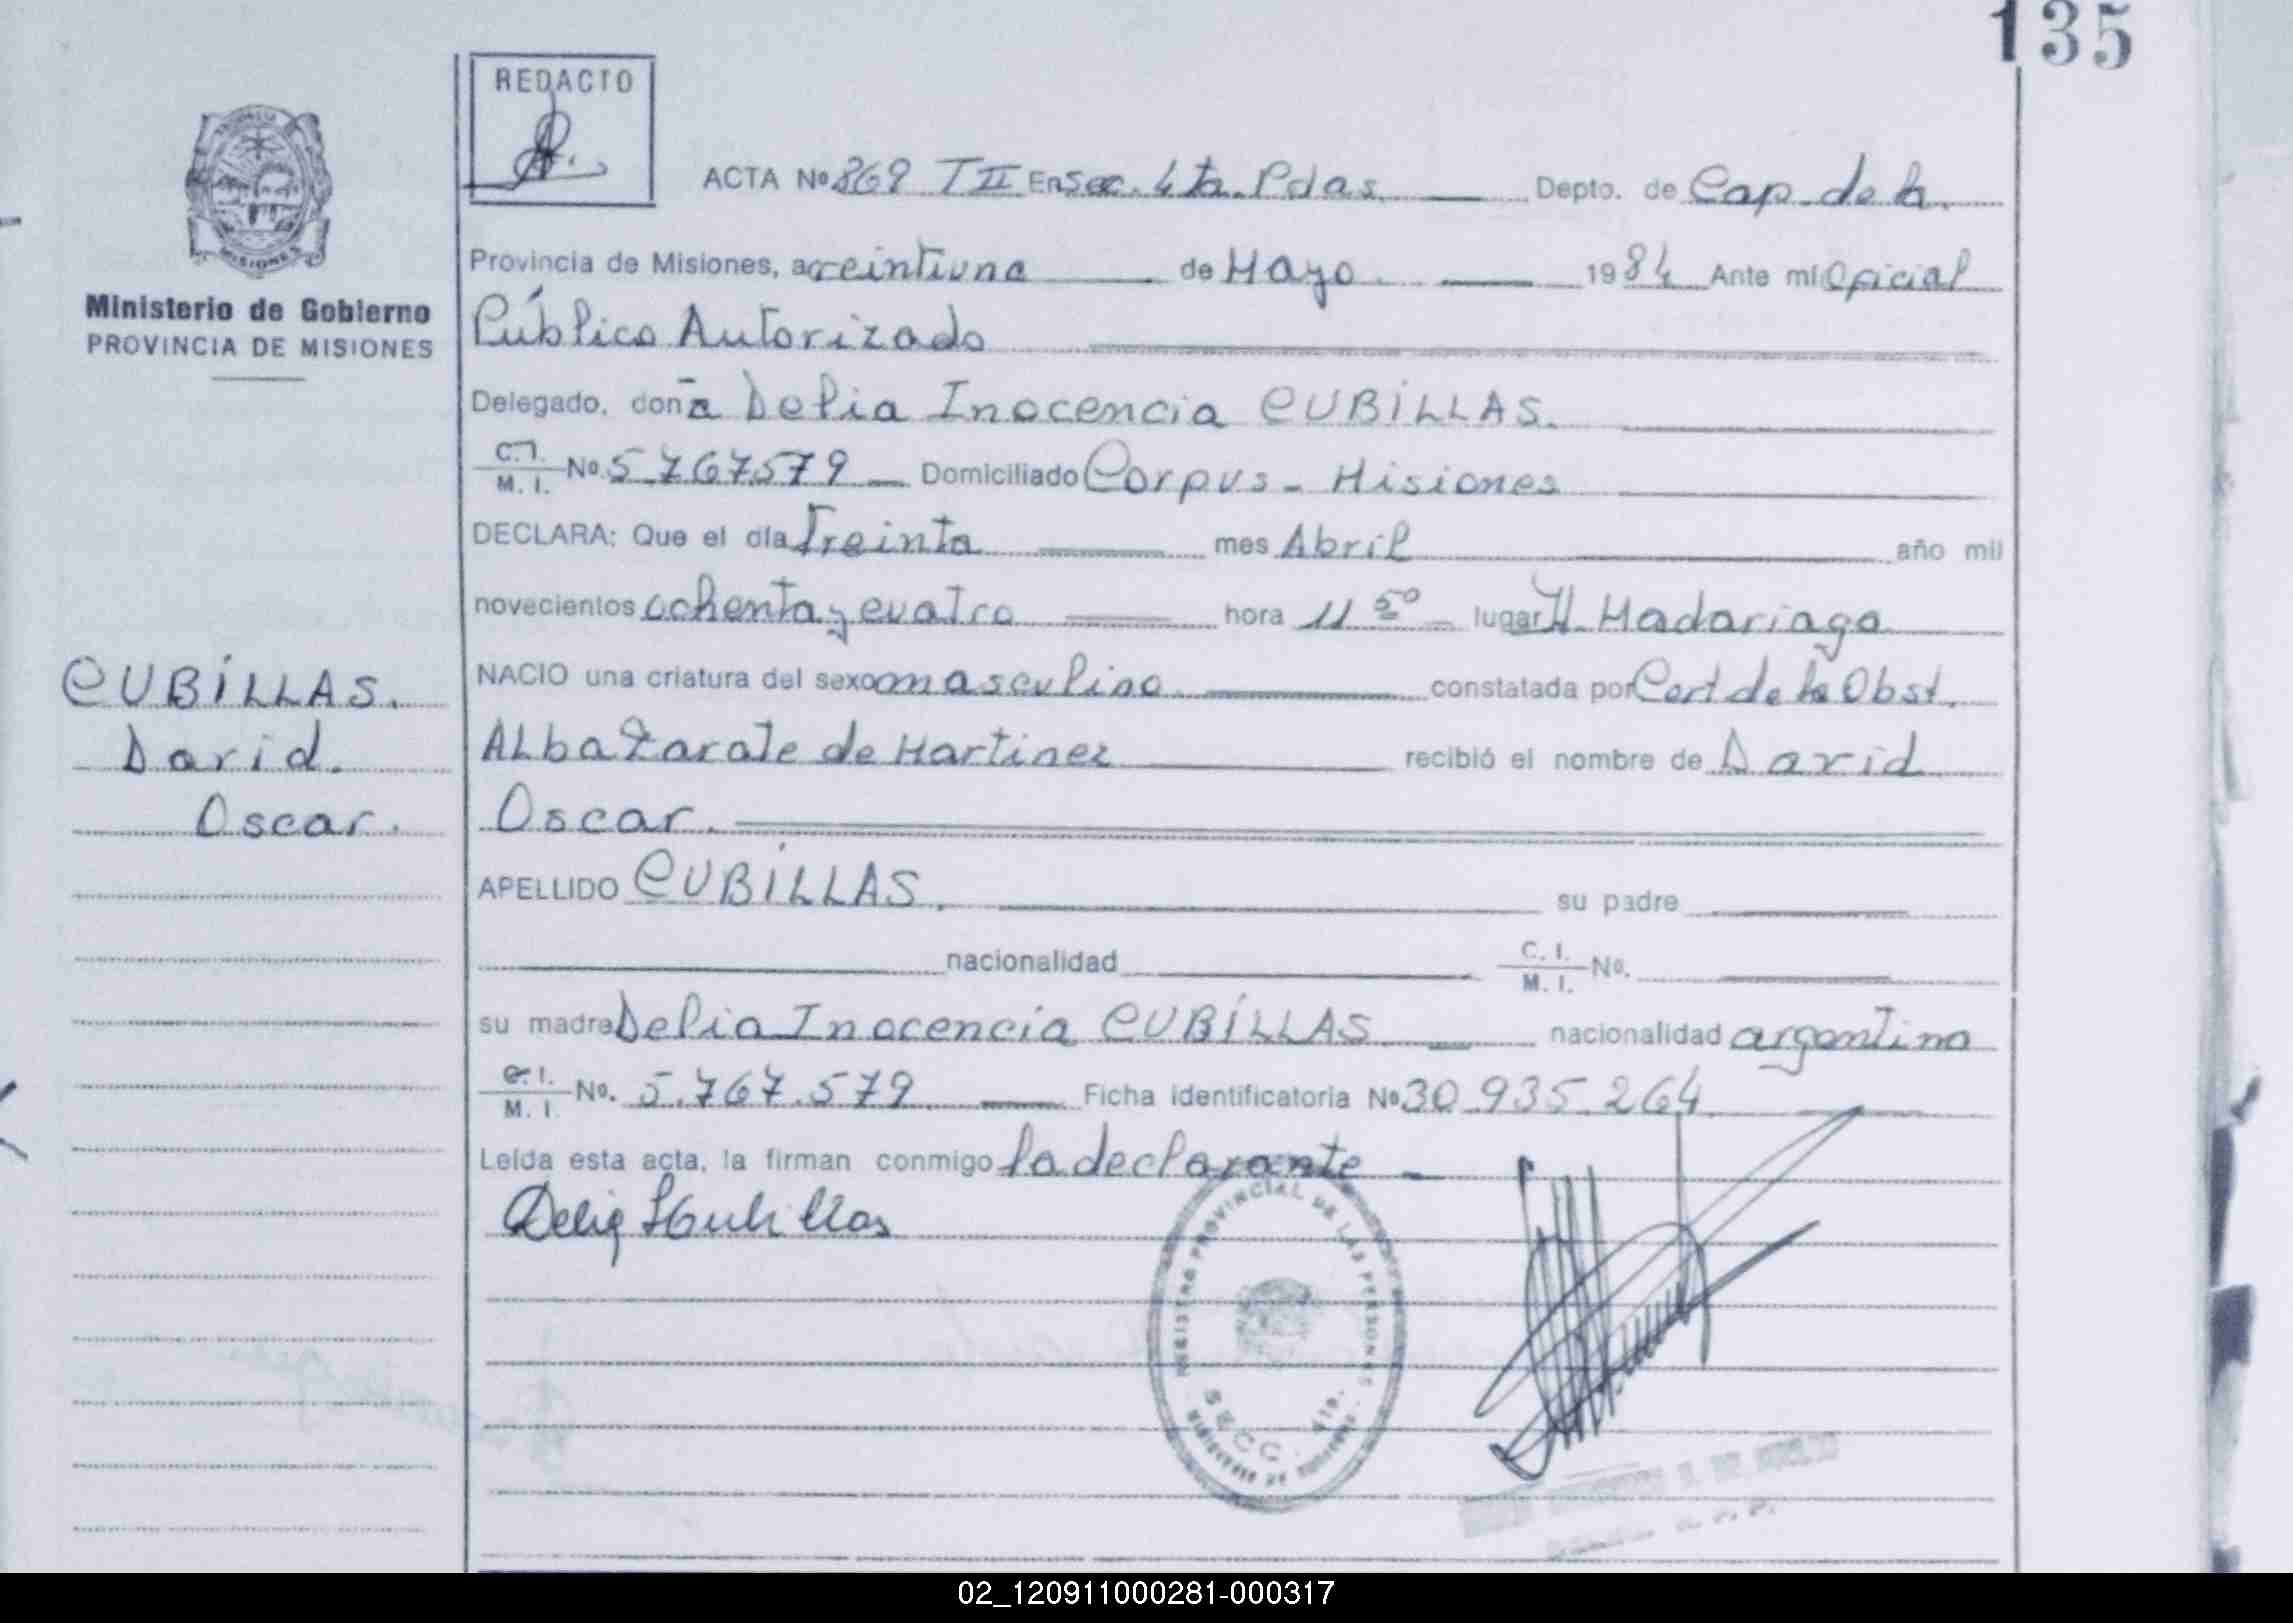 135
REDACTO
ACTA Nº 869 T II En Sec. 4ta. Pdas. Depto. de Cap. de la
Provincia de Misiones, a veintiuno de Mayo 1984 Ante mí Oficial
Público Autorizado
Ministerio de Gobierno
PROVINCIA DE MISIONES
Delegado, doña Delia Inocencia CUBILLAS.
C.I. M. I. No. 5.767.579 Domiciliado Corpus - Misiones
DECLARA: Que el día Treinta mes Abril año mil
novecientos ochenta y cuatro hora 11 50 lugar H. Madariaga
NACIO una criatura del sexo masculino constatada por Cert de la Obst.
Alba Zarate de Martinez recibió el nombre de David
Oscar.
CUBILLAS.
David.
Oscar.
APELLIDO CUBILLAS. su padre
nacionalidad C. I. M. I. No.
su madre Delia Inocencia CUBILLAS nacionalidad argentina
C. I. M. I. No. 5.767.579 Ficha identificatoria No 30.935.264
Leída esta acta, la firman conmigo la declarante
Delia I Cubillas
REGISTRO PROVINCIAL DE LAS PERSONAS
SECC. 4ta.
MINISTERIO DE GOBIERNO
02_120911000281-000317